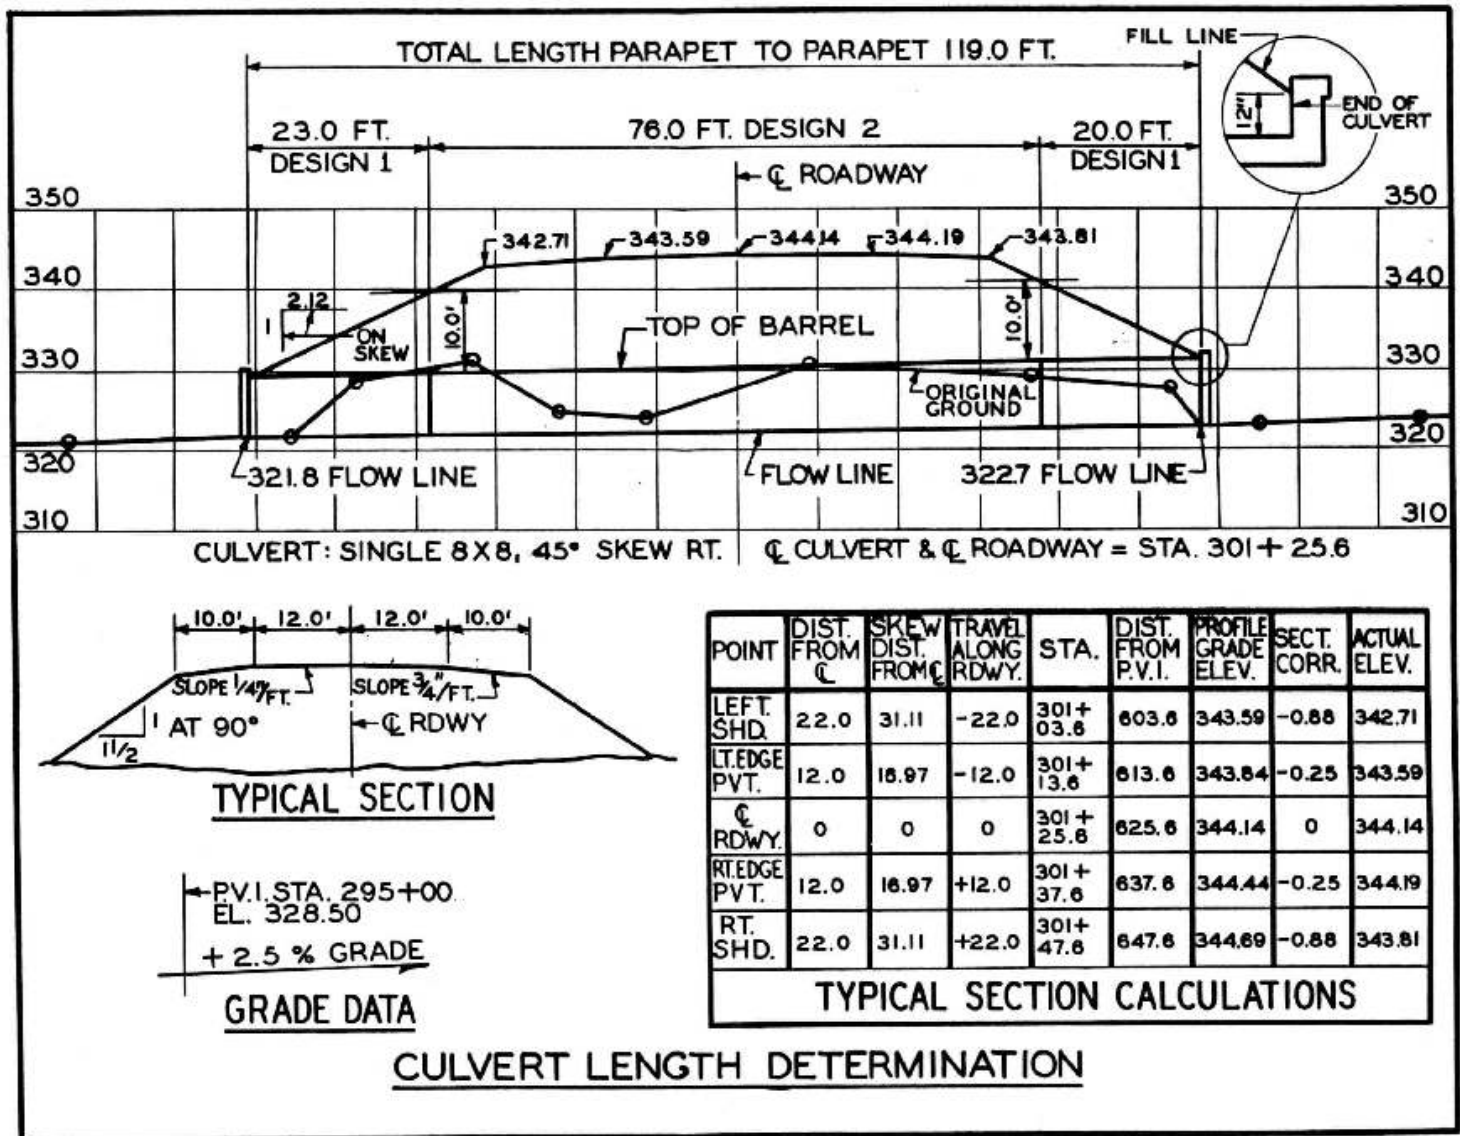 TOTAL LENGTH PARAPET TO PARAPET 119.0 FT.
FILL LINE
12"
END OF
CULVERT
23.0 FT.
DESIGN 1
76.0 FT. DESIGN 2
20.0 FT.
DESIGN 1
℄ ROADWAY
350
350
342.71
343.59
344.14
344.19
343.81
340
340
2.12
1
ON
SKEW
10.0'
10.0'
TOP OF BARREL
330
330
ORIGINAL
GROUND
320
320
321.8 FLOW LINE
FLOW LINE
322.7 FLOW LINE
310
310
CULVERT: SINGLE 8X8, 45° SKEW RT.
℄ CULVERT & ℄ ROADWAY = STA. 301+25.6
10.0' 12.0' 12.0' 10.0'
SLOPE 1/4"/FT.
SLOPE 3/4"/FT.
1 AT 90°
1 1/2
℄ RDWY
TYPICAL SECTION
P.V.I. STA. 295+00
EL. 328.50
+ 2.5 % GRADE
GRADE DATA
POINT DIST. FROM ℄ SKEW DIST. FROM ℄ TRAVEL ALONG RDWY. STA. DIST. FROM P.V.I. PROFILE GRADE ELEV. SECT. CORR. ACTUAL ELEV.
LEFT. SHD. 22.0 31.11 -22.0 301+ 03.6 603.6 343.59 -0.88 342.71
LT. EDGE PVT. 12.0 16.97 -12.0 301+ 13.6 613.6 343.84 -0.25 343.59
℄ RDWY. 0 0 0 301+ 25.6 625.6 344.14 0 344.14
RT. EDGE PVT. 12.0 16.97 +12.0 301+ 37.6 637.6 344.44 -0.25 344.19
RT. SHD. 22.0 31.11 +22.0 301+ 47.6 647.6 344.69 -0.88 343.81
TYPICAL SECTION CALCULATIONS
CULVERT LENGTH DETERMINATION